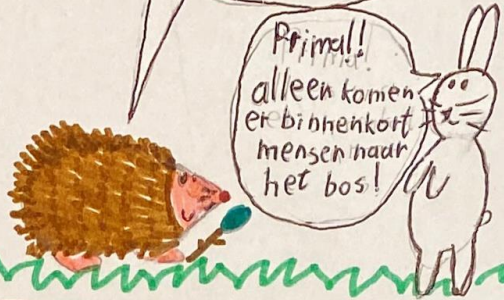 Prima!
alleen komen
er binnenkort
mensen naar
het bos!